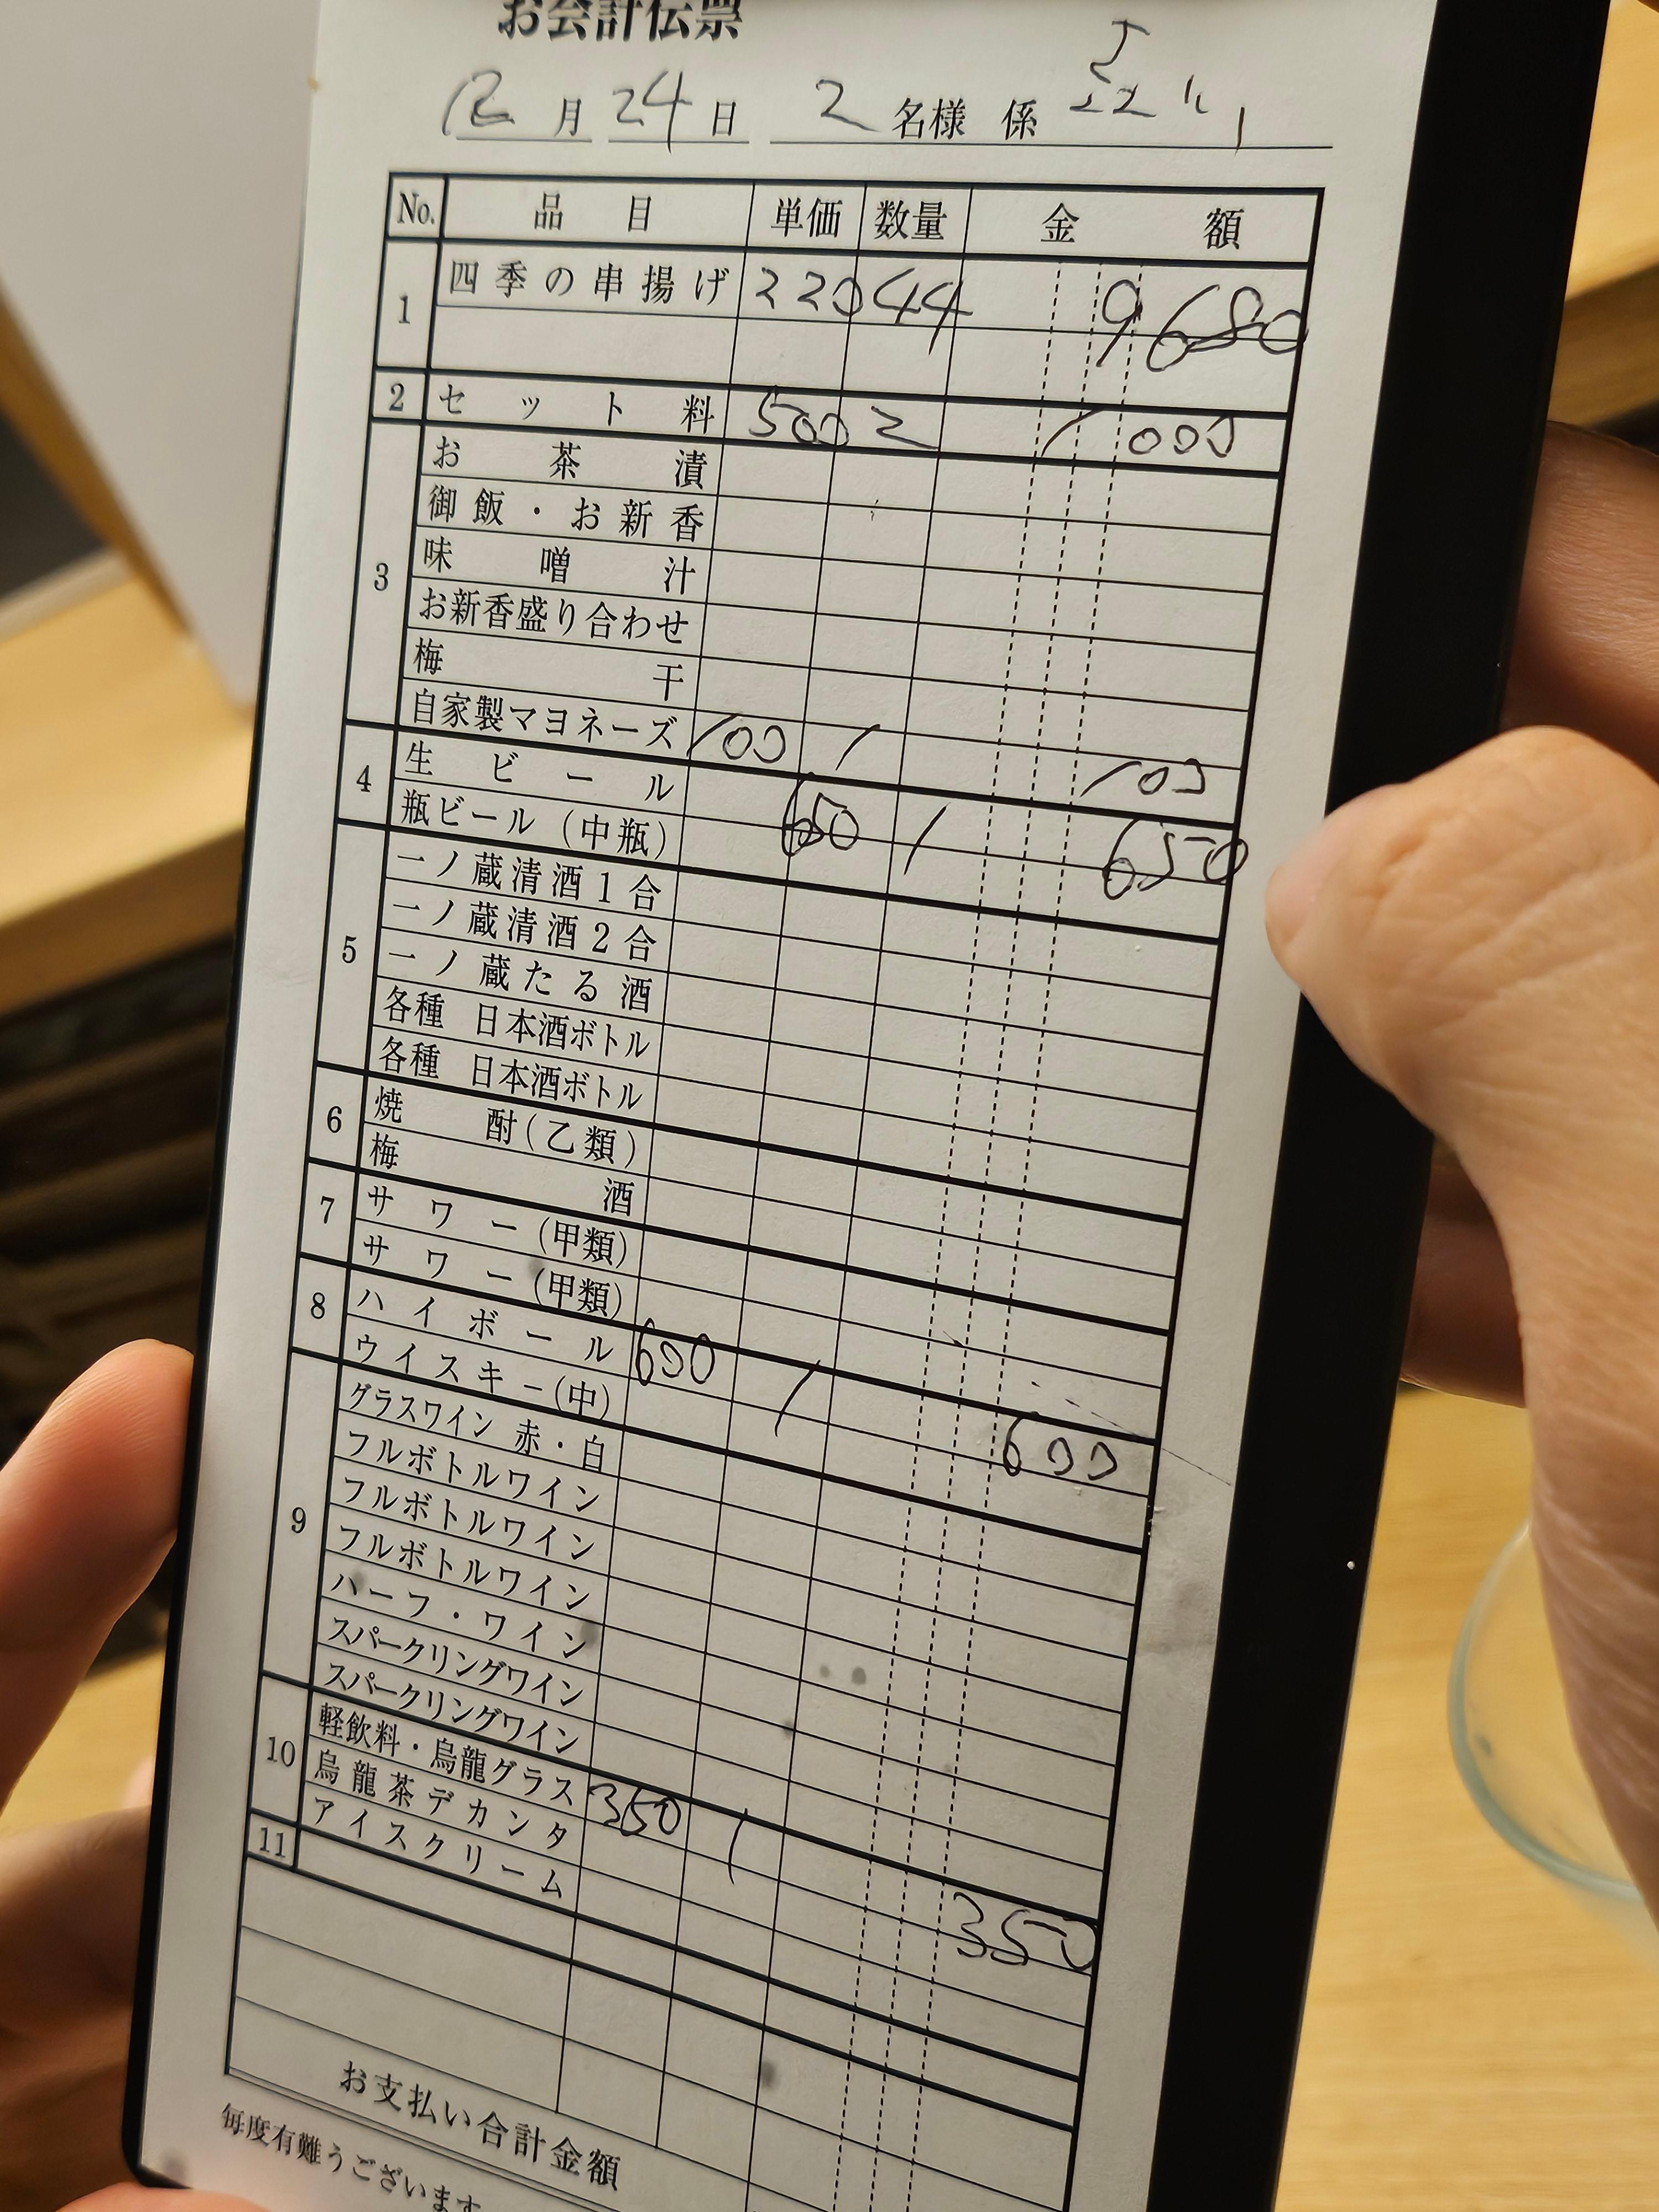 お会計伝票
12月 24日 2名様 係
No. 品目 単価 数量 金額
1 四季の串揚げ 220 44 9680
2 セット料 500 2 1000
3 お茶漬
御飯・お新香
味噌汁
お新香盛り合わせ
梅干
自家製マヨネーズ 100 1 100
4 生ビール 650 1 650
瓶ビール(中瓶)
5 一ノ蔵清酒1合
一ノ蔵清酒2合
一ノ蔵たる酒
各種 日本酒ボトル
各種 日本酒ボトル
6 焼酎(乙類)
梅酒
7 サワー(甲類)
サワー(甲類)
8 ハイボール 600 1 600
ウイスキー(中)
9 グラスワイン 赤・白
フルボトルワイン
フルボトルワイン
フルボトルワイン
ハーフ・ワイン
スパークリングワイン
スパークリングワイン
10 軽飲料・烏龍グラス 350 1 350
烏龍茶デカンタ
11 アイスクリーム
お支払い合計金額
毎度有難うございます